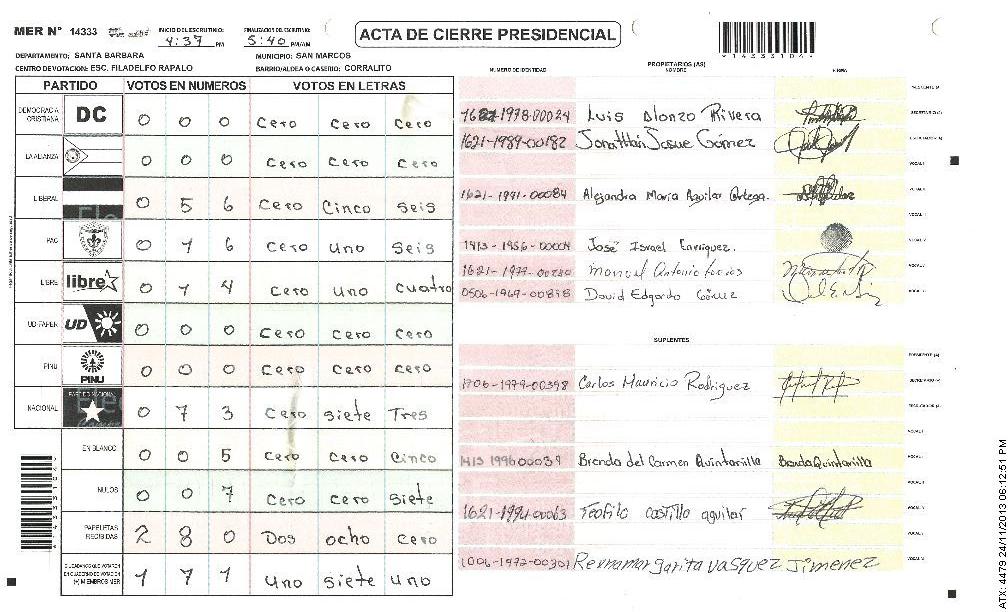 MER N° 14333
INICIO DEL ESCRUTINIO:
4:37 PM
FINALIZACION DEL ESCRUTINIO:
5:40 PM/AM
ACTA DE CIERRE PRESIDENCIAL
DEPARTAMENTO: SANTA BARBARA
MUNICIPIO: SAN MARCOS
CENTRO DE VOTACION: ESC. FILADELFO RAPALO
BARRIO/ALDEA O CASERIO: CORRALITO
PARTIDO VOTOS EN NUMEROS VOTOS EN LETRAS
DEMOCRACIA CRISTIANA DC 0 0 0 Cero Cero Cero
LA ALIANZA 0 0 0 Cero Cero Cero
LIBERAL 0 5 6 Cero Cinco Seis
PAC 0 1 6 Cero Uno Seis
LIBRE libre 0 1 4 Cero Uno Cuatro
UD-FAPER UD 0 0 0 Cero Cero Cero
PINU PINU 0 0 0 Cero Cero Cero
NACIONAL 0 7 3 Cero Siete Tres
EN BLANCO 0 0 5 Cero Cero Cinco
NULOS 0 0 7 Cero Cero Siete
PAPELETAS RECIBIDAS 2 8 0 Dos ocho Cero
CIUDADANOS QUE VOTARON EN CUADERNO DE VOTACION (+) MIEMBROS MER 1 7 1 Uno Siete Uno
PROPIETARIOS (AS)
NUMERO DE IDENTIDAD NOMBRE FIRMA
Luis Alonzo Rivera
1621-1989-00182 Jonatthan Josue Gómez
1621-1991-00084 Alejandra Maria Aguilar Ortega.
1413-1956-00004 José Israel Enriquez.
Manuel Antonio
0506-1969-00818 David Edgardo Gómez
SUPLENTES
1706-1979-00398 Carlos Mauricio Rodriguez
1413 1996 00039 Brenda del Carmen Quintanilla Brenda Quintanilla
1621-1994-00063 Teofilo Castillo aguilar
1006-1972-00301 Reyna margarita vasquez Jimenez
ATX: 4479 24/11/2013 06:12:51 PM